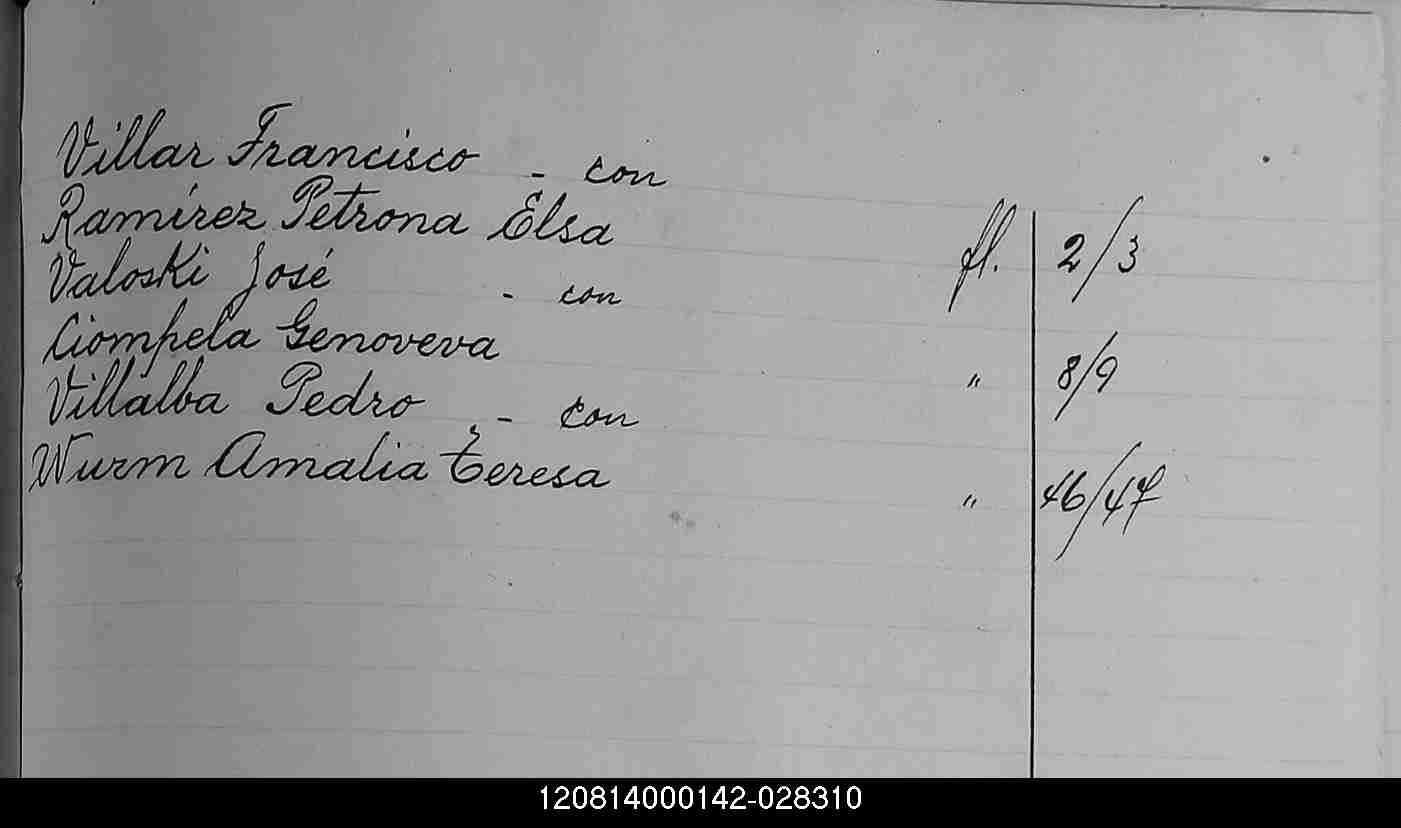 Villar Francisco - con
Ramírez Petrona Elsa fl. 2/3
Valoski José - con
Ciompela Genoveva " 8/9
Villalba Pedro - con
Wurm Amalia Teresa " 46/47
120814000142-028310